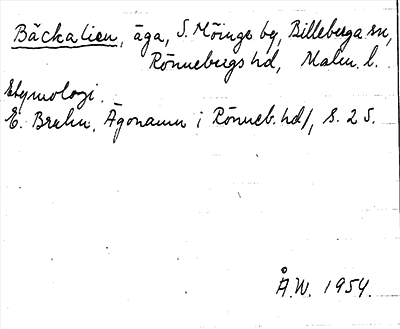 Bäckalien, äga, S. Möinge by, Billeberga sn,
Rönnebergs hd, Malm. l.
Etymologi.
E. Brehn, Ägonamn i Rönneb. hd, s. 25.
Å.W. 1954.